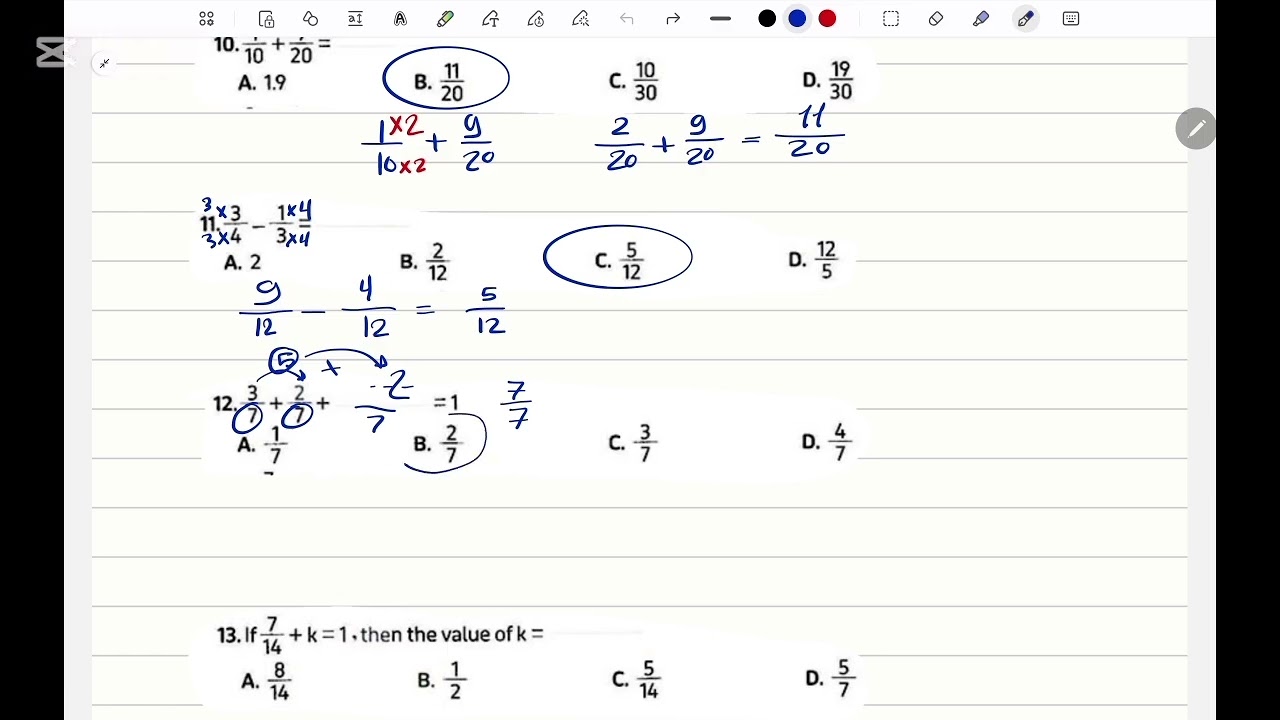 10. 1/10 + 9/20 =
A. 1.9 B. 11/20 C. 10/30 D. 19/30
1×2/10×2 + 9/20 2/20 + 9/20 = 11/20
11. 3×3/3×4 − 1×4/3×4 =
A. 2 B. 2/12 C. 5/12 D. 12/5
9/12 − 4/12 = 5/12
5 +
12. 3/7 + 2/7 + 2/7 = 1 7/7
A. 1/7 B. 2/7 C. 3/7 D. 4/7
13. If 7/14 + k = 1, then the value of k =
A. 8/14 B. 1/2 C. 5/14 D. 5/7